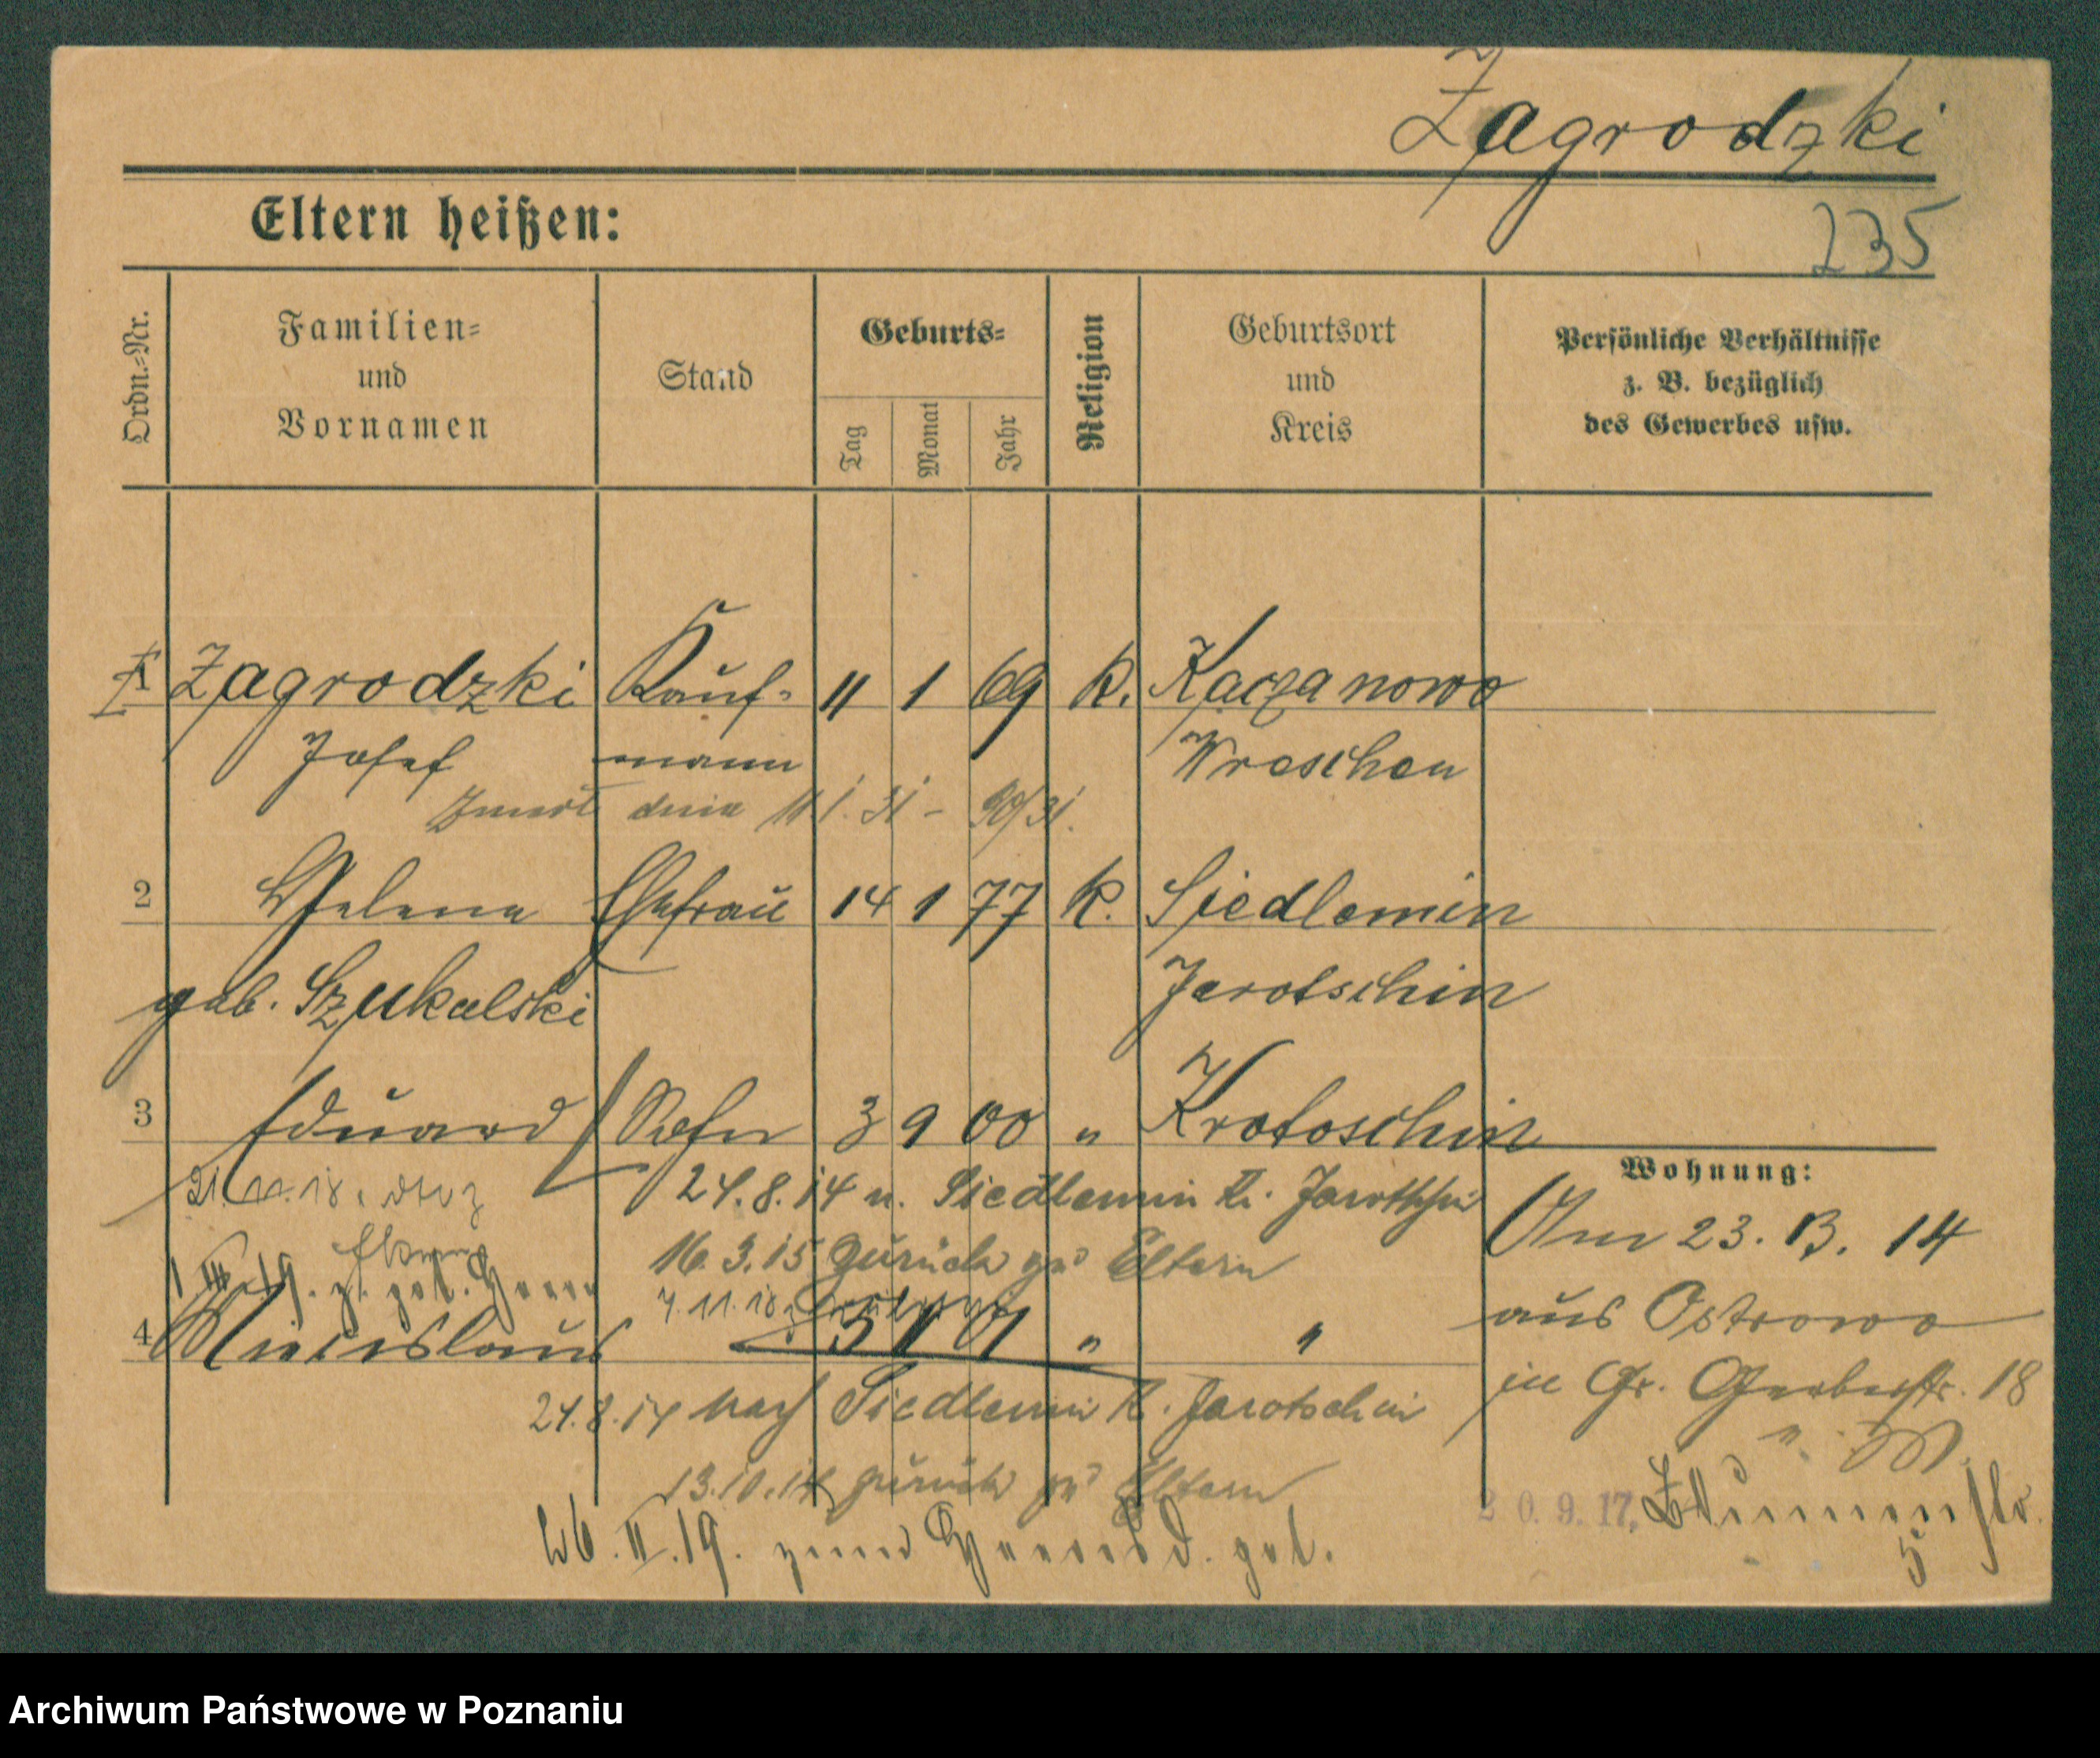 Zagrodzki
Eltern heißen:
235
Ordn.-Nr.
Familien-
und
Vornamen
Stand
Geburts-
Tag
Monat
Jahr
Religion
Geburtsort
und
Kreis
Persönliche Verhältnisse
z. B. bezüglich
des Gewerbes usw.
1 Zagrodzki Kauf- 11 1 69 k. Kaczanowo
Josef mann Wreschen
Zmarł dnia 11 1. 31 - 90/31.
2 Helena Ehefrau 14 1 77 k. Siedlemin
geb. Szukalski Jarotschin
3 Eduard Sohn 3 9 00 " Krotoschin
24.8.14 n. Siedlemin Kr. Jarotschin
16.3.15 zurück zu Eltern
7.11.18
4 Miecislaus 5 1 01 " "
24.8.14 nach Siedlemin K. Jarotschin
13.10.14 zurück zu Eltern
26.II.19. zum gel.
Wohnung:
Am 23. 13. 14
aus Ostrowo
in Gr. Gerberstr. 18
20.9.17. Blumenstr.
5
Archiwum Państwowe w Poznaniu